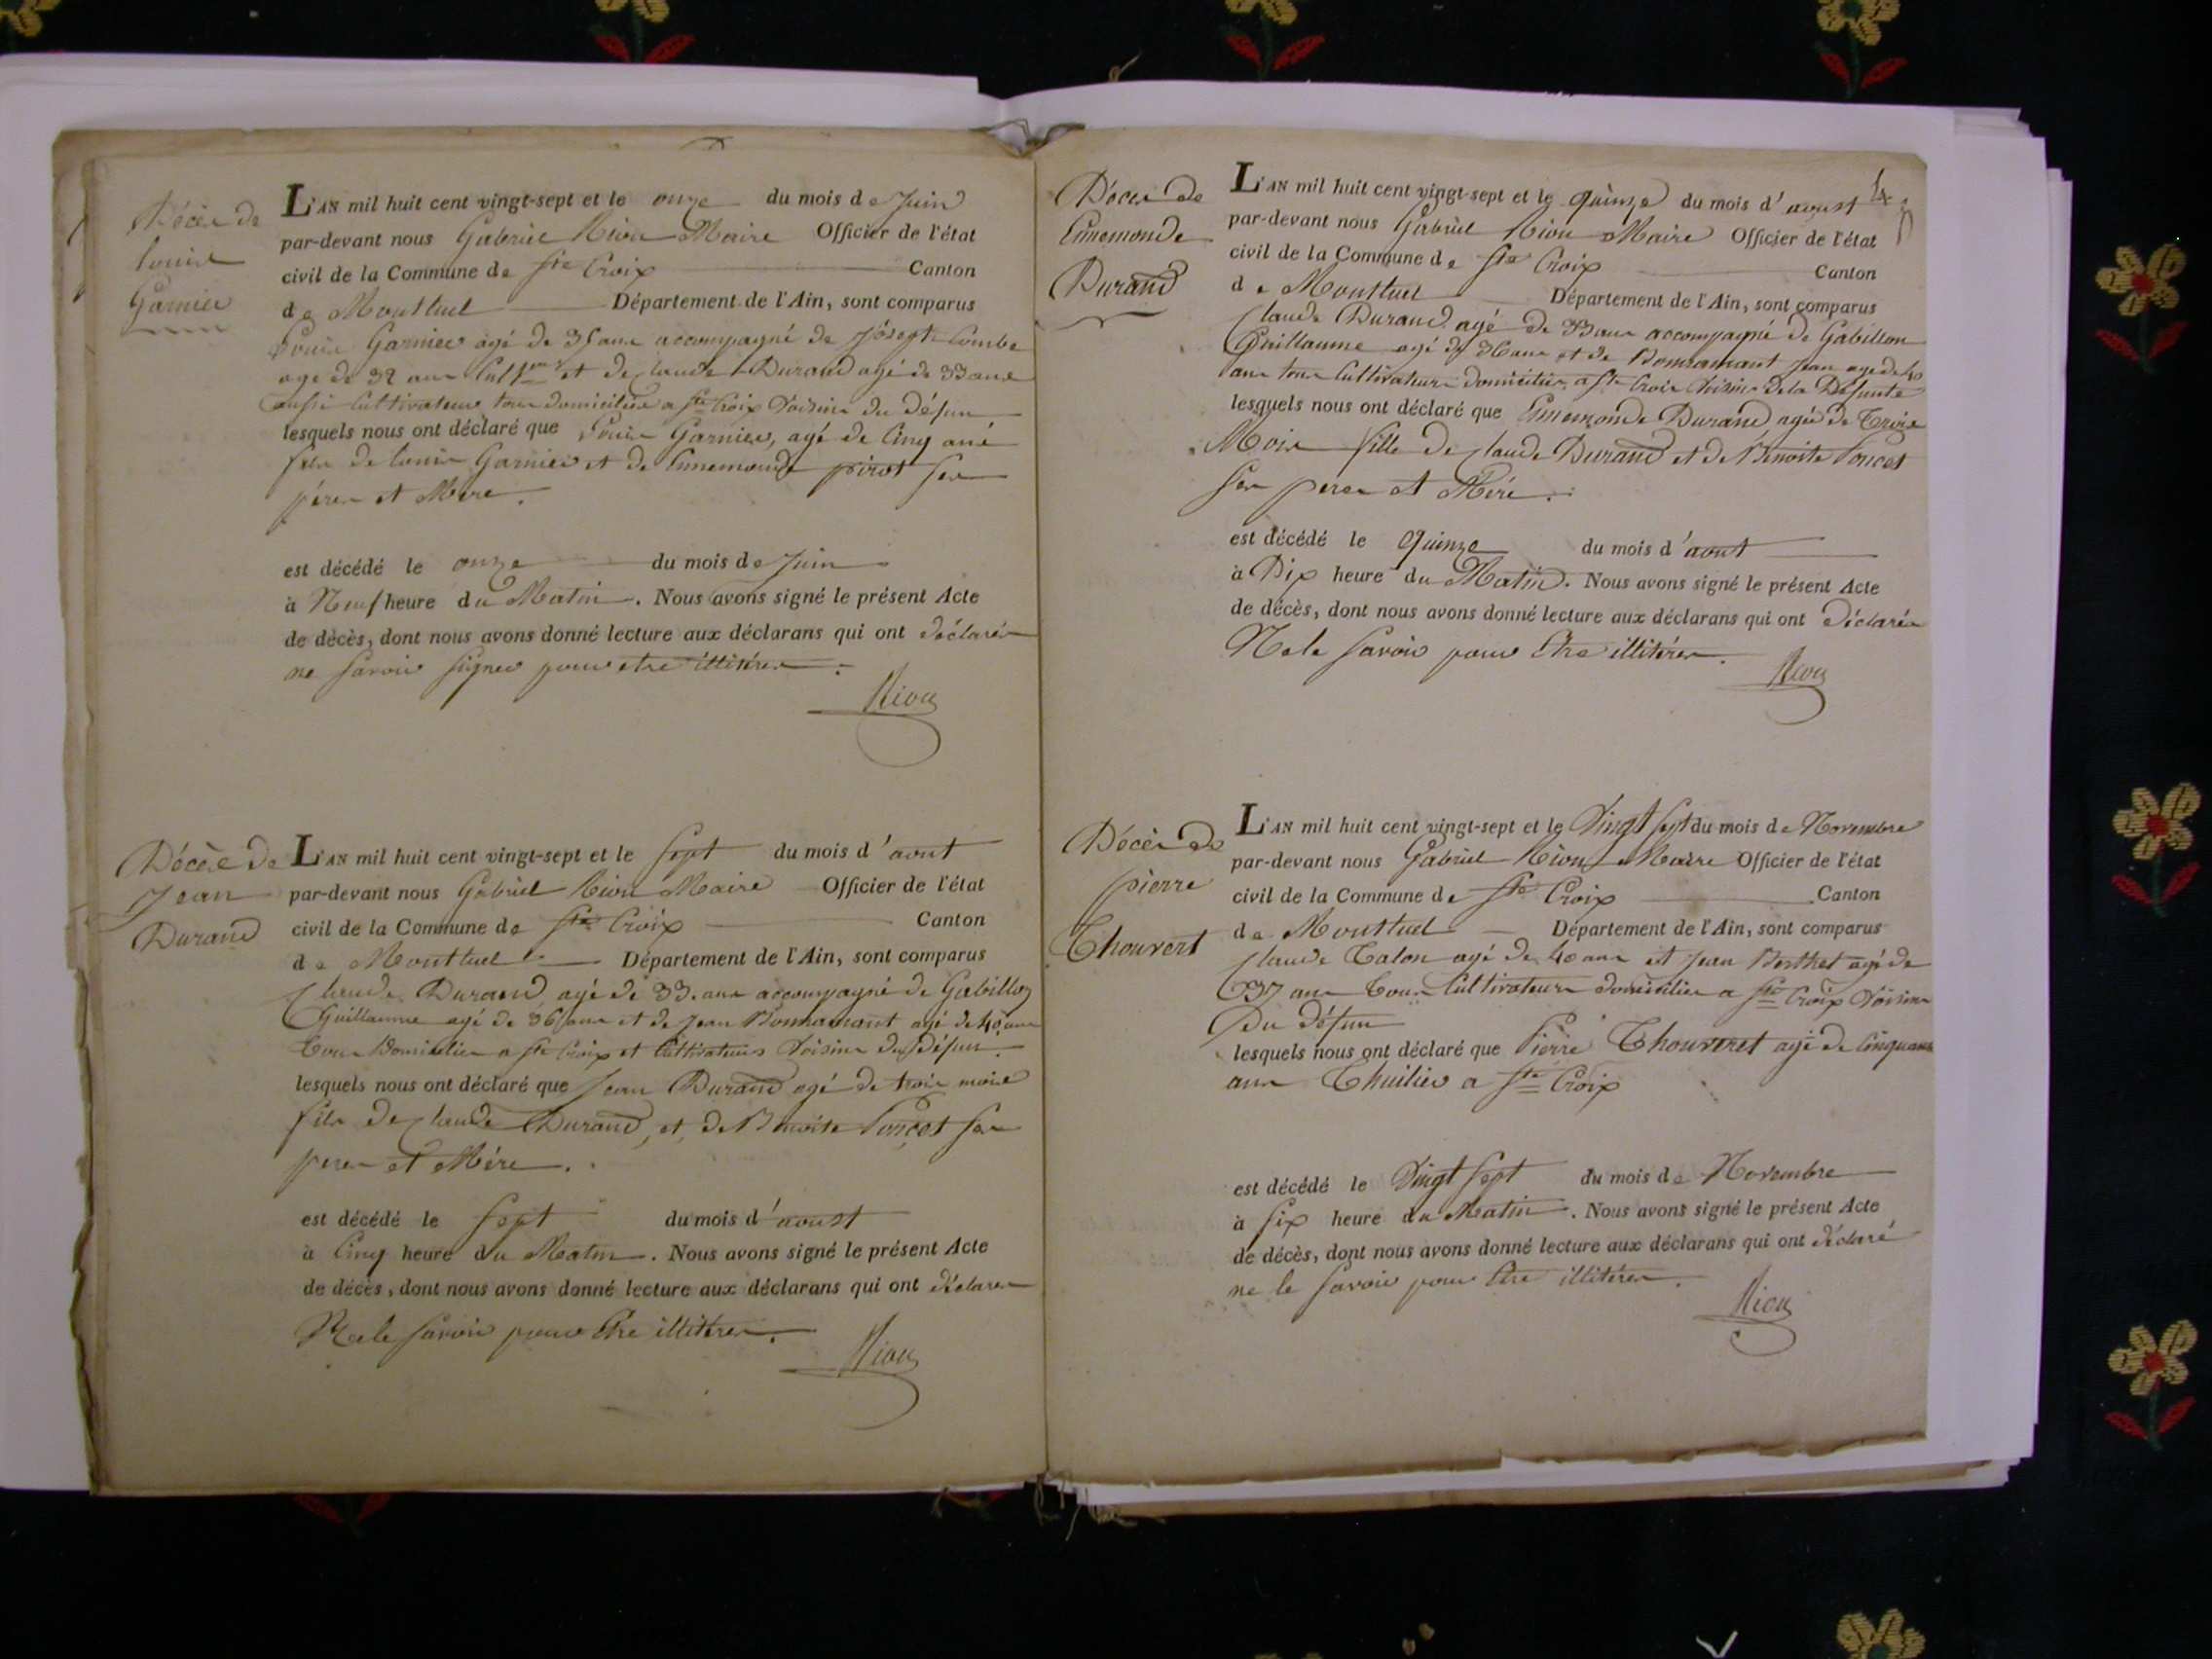 Décès de
Louis
Garnier
L'AN mil huit cent vingt-sept et le onze du mois de Juin
par-devant nous Gabriel Riou Maire Officier de l'état
civil de la Commune de Ste Croix Canton
de Montluel Département de l'Ain, sont comparus
Louis Garnier agé de 35 ans accompagné de Joseph Combe
age de 32 ans et de Claude Durand agé de 33 ans
aussi Cultivateurs tous domiciliés a Ste Croix Voisins du défun
lesquels nous ont déclaré que Louis Garnier, agé de Cinq ans
fils de Louis Garnier et de Ennemonde pirot ses
péres et Mere.
est décédé le onze du mois de Juin
à Neuf heure du Matin. Nous avons signé le présent Acte
de décès, dont nous avons donné lecture aux déclarans qui ont déclarés
ne Savoir Signer pour etre illitéres.
Riou
Décès de
Jean
Durand
L'AN mil huit cent vingt-sept et le Sept du mois d'aout
par-devant nous Gabriel Riou Maire Officier de l'état
civil de la Commune de Ste Croix Canton
de Montluel Département de l'Ain, sont comparus
Claude Durand agé de 33. ans accompagné de Gabillon
Guillaume agé de 36 ans et de Jean Bonnamant agé de 40 ans
Tous Domiciliés a Ste Croix et Cultivateurs Voisins du défun.
lesquels nous ont déclaré que Jean Durand agé de trois mois
fils de Claude Durand, et de Benoite Poncet Ses
peres et Mére.
est décédé le Sept du mois d'aoust
à Cinq heure du Matin. Nous avons signé le présent Acte
de décès, dont nous avons donné lecture aux déclarans qui ont déclarés
Ne le Savoir pour Etre illitéres.
Riou
4
Décès de
Ennemonde
Durand
L'AN mil huit cent vingt-sept et le quinze du mois d'aoust
par-devant nous Gabriel Riou Maire Officier de l'état
civil de la Commune de Ste Croix Canton
de Montluel Département de l'Ain, sont comparus
Claude Durand agé de 33 ans accompagné de Gabillon
Guillaume agé de 36 ans et de Bonnamant Jean age de 40
ans tous Cultivateurs domiciliés a Ste Croix Voisins de la Défunte
lesquels nous ont déclaré que Ennemonde Durand agée de Trois
Mois fille de Claude Durand et de Benoite Poncet
Ses peres et Mére.
est décédé le Quinze du mois d'aout
à Dix heure du Matin. Nous avons signé le présent Acte
de décès, dont nous avons donné lecture aux déclarans qui ont déclarés
Ne le Savoir pour Etre illitéres.
Riou
Décès de
pierre
Thouvert
L'AN mil huit cent vingt-sept et le Vingt Sept du mois de Novembre
par-devant nous Gabriel Riou Maire Officier de l'état
civil de la Commune de Ste Croix Canton
de Montluel Département de l'Ain, sont comparus
Claude Talon agé de 40 ans et Jean Berthet agé de
37 ans Tous Cultivateurs domiciliés a Ste Croix Voisins
Du défun
lesquels nous ont déclaré que Pierre Thouveret agé de Cinquante
ans Thuilier a Ste Croix
est décédé le Vingt Sept du mois de Novembre
à Six heure du Matin. Nous avons signé le présent Acte
de décès, dont nous avons donné lecture aux déclarans qui ont déclaré
ne le Savoir pour Etre illitéres.
Riou